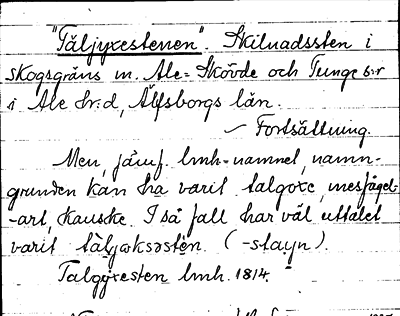 "Täljyxestenen". Skilnadssten i
skogsgräns m. Ale-Skövde och Tunge s:r
i Ale h:d, Älfsborgs län.
Fortsättning.
Men, jämf. lmh-namnet, namn-
grunden kan ha varit talgoxe, mesfågel-
-art, kanske. I så fall har väl uttalet
varit täljoksəstén. (-stayn).
Talgyxesten lmh. 1814.